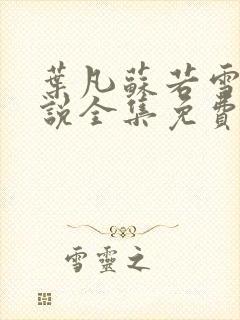 葉凡蘇若雪
說全集免費
雪靈之